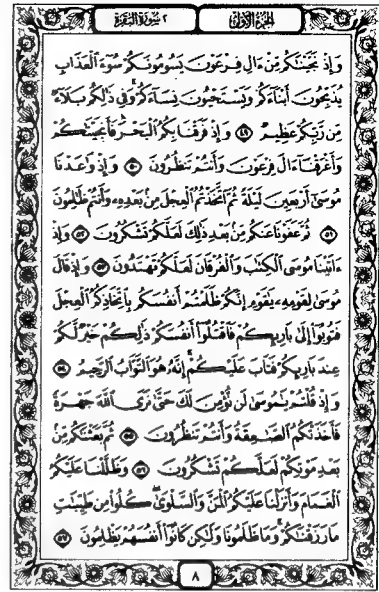 الجزء الأول
٢ سورة البقرة
٨
وَإِذْ نَجَّيْنَٰكُم مِّنْ ءَالِ فِرْعَوْنَ يَسُومُونَكُمْ سُوٓءَ ٱلْعَذَابِ
يُذَبِّحُونَ أَبْنَآءَكُمْ وَيَسْتَحْيُونَ نِسَآءَكُمْ ۚ وَفِى ذَٰلِكُم بَلَآءٌ
مِّن رَّبِّكُمْ عَظِيمٌ ۝٤٩ وَإِذْ فَرَقْنَا بِكُمُ ٱلْبَحْرَ فَأَنجَيْنَٰكُمْ
وَأَغْرَقْنَآ ءَالَ فِرْعَوْنَ وَأَنتُمْ تَنظُرُونَ ۝٥٠ وَإِذْ وَٰعَدْنَا
مُوسَىٰٓ أَرْبَعِينَ لَيْلَةً ثُمَّ ٱتَّخَذْتُمُ ٱلْعِجْلَ مِنۢ بَعْدِهِۦ وَأَنتُمْ ظَٰلِمُونَ
۝٥١ ثُمَّ عَفَوْنَا عَنكُم مِّنۢ بَعْدِ ذَٰلِكَ لَعَلَّكُمْ تَشْكُرُونَ ۝٥٢ وَإِذْ
ءَاتَيْنَا مُوسَى ٱلْكِتَٰبَ وَٱلْفُرْقَانَ لَعَلَّكُمْ تَهْتَدُونَ ۝٥٣ وَإِذْ قَالَ
مُوسَىٰ لِقَوْمِهِۦ يَٰقَوْمِ إِنَّكُمْ ظَلَمْتُمْ أَنفُسَكُم بِٱتِّخَاذِكُمُ ٱلْعِجْلَ
فَتُوبُوٓا۟ إِلَىٰ بَارِئِكُمْ فَٱقْتُلُوٓا۟ أَنفُسَكُمْ ذَٰلِكُمْ خَيْرٌ لَّكُمْ
عِندَ بَارِئِكُمْ فَتَابَ عَلَيْكُمْ ۚ إِنَّهُۥ هُوَ ٱلتَّوَّابُ ٱلرَّحِيمُ ۝٥٤
وَإِذْ قُلْتُمْ يَٰمُوسَىٰ لَن نُّؤْمِنَ لَكَ حَتَّىٰ نَرَى ٱللَّهَ جَهْرَةً
فَأَخَذَتْكُمُ ٱلصَّٰعِقَةُ وَأَنتُمْ تَنظُرُونَ ۝٥٥ ثُمَّ بَعَثْنَٰكُم مِّنۢ
بَعْدِ مَوْتِكُمْ لَعَلَّكُمْ تَشْكُرُونَ ۝٥٦ وَظَلَّلْنَا عَلَيْكُمُ
ٱلْغَمَامَ وَأَنزَلْنَا عَلَيْكُمُ ٱلْمَنَّ وَٱلسَّلْوَىٰ ۖ كُلُوا۟ مِن طَيِّبَٰتِ
مَا رَزَقْنَٰكُمْ ۖ وَمَا ظَلَمُونَا وَلَٰكِن كَانُوٓا۟ أَنفُسَهُمْ يَظْلِمُونَ ۝٥٧
٨